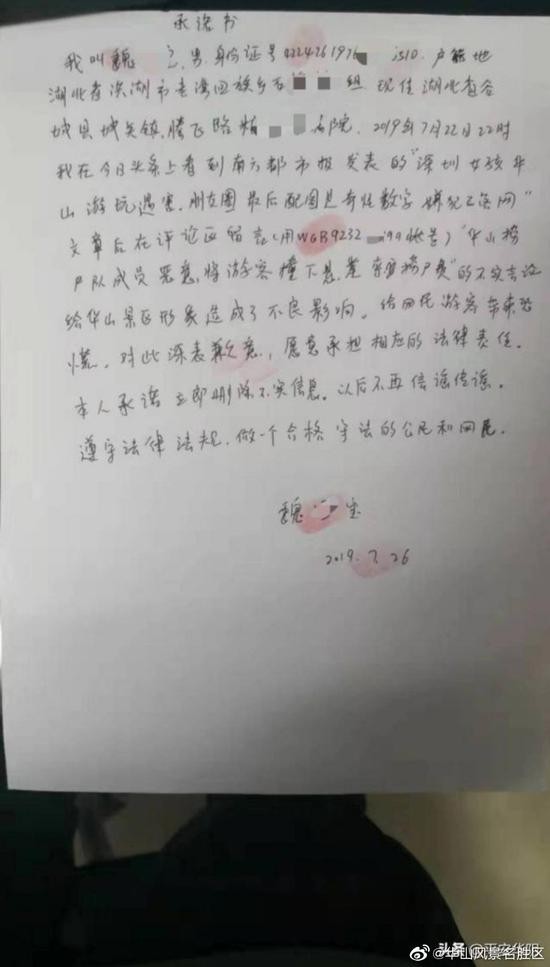 承诺书
我叫魏 男.身份证号422426197 3510.户籍地
湖北省洪湖市老湾回族乡 组 现住湖北省谷
城县城关镇.腾飞路 名院. 2019年7月22日22时
我在今日头条上看到南方都市报发表的"深圳女孩华
山游玩遇害.朋友圈最后配图是奇怪数字 网"
文章后在评论区留言(用WGB9232 199账号)"华山捞
尸队成员恶意.将游客撞下悬崖 捞尸费"的不实言论
给华山景区形象造成了不良影响。给网民游客带来恐
慌. 对此深表歉意, 愿意承担相应的法律责任.
本人承诺立即删除不实信息。以后不再信谣传谣。
遵守法律法规.做一个合格守法的公民和网民.
魏 宝
2019.7.26
头条@平安华阴
@华山风景名胜区